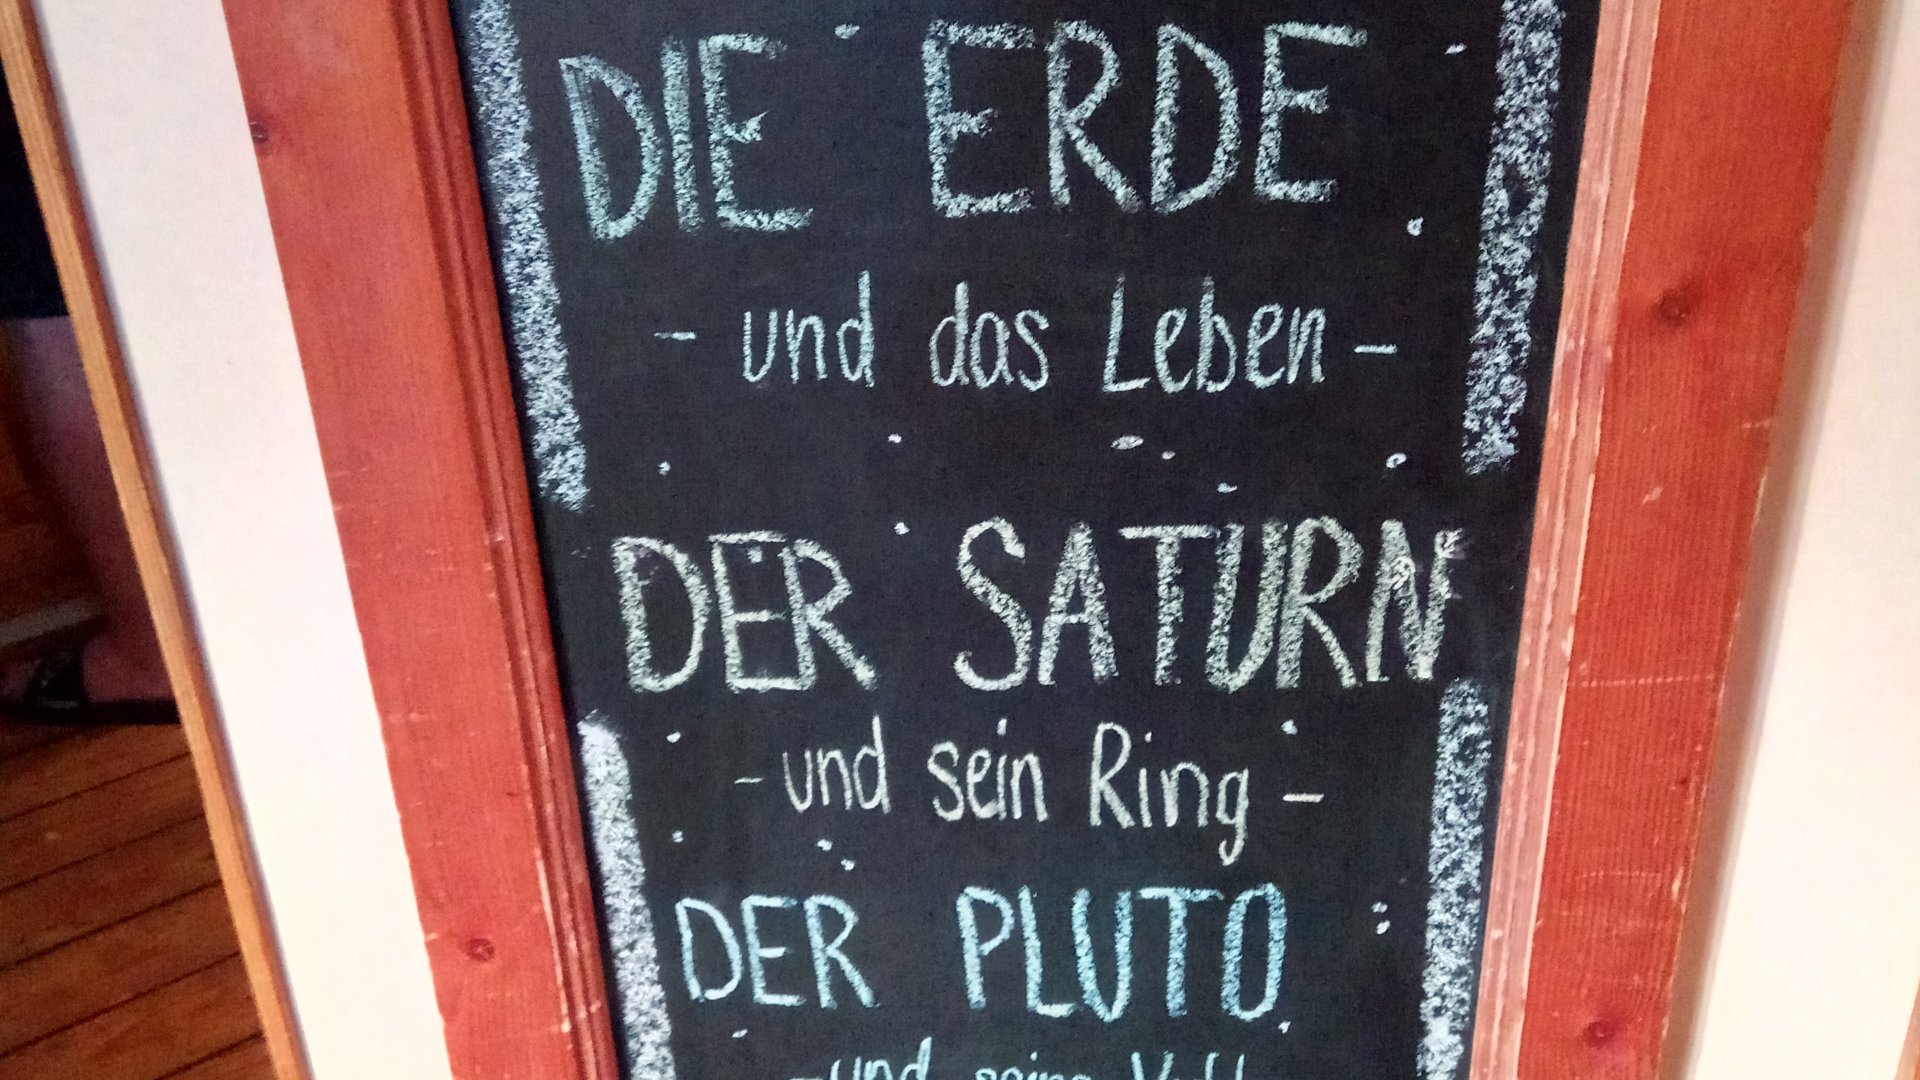 DIE ERDE
- und das Leben -
DER SATURN
- und sein Ring -
DER PLUTO
- und seine